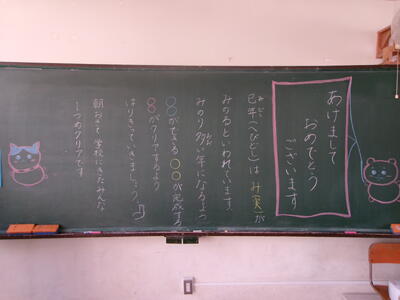 あけまして
おめでとう
ございます
巳年(へびどし)は み(実)が
みのるといわれています。
みのり多い年になるよう
○○ができる ○○が完成する
○○がクリアするよう
はりきっていきましょう
朝おきて 学校にきたみんな
一つのクリアです